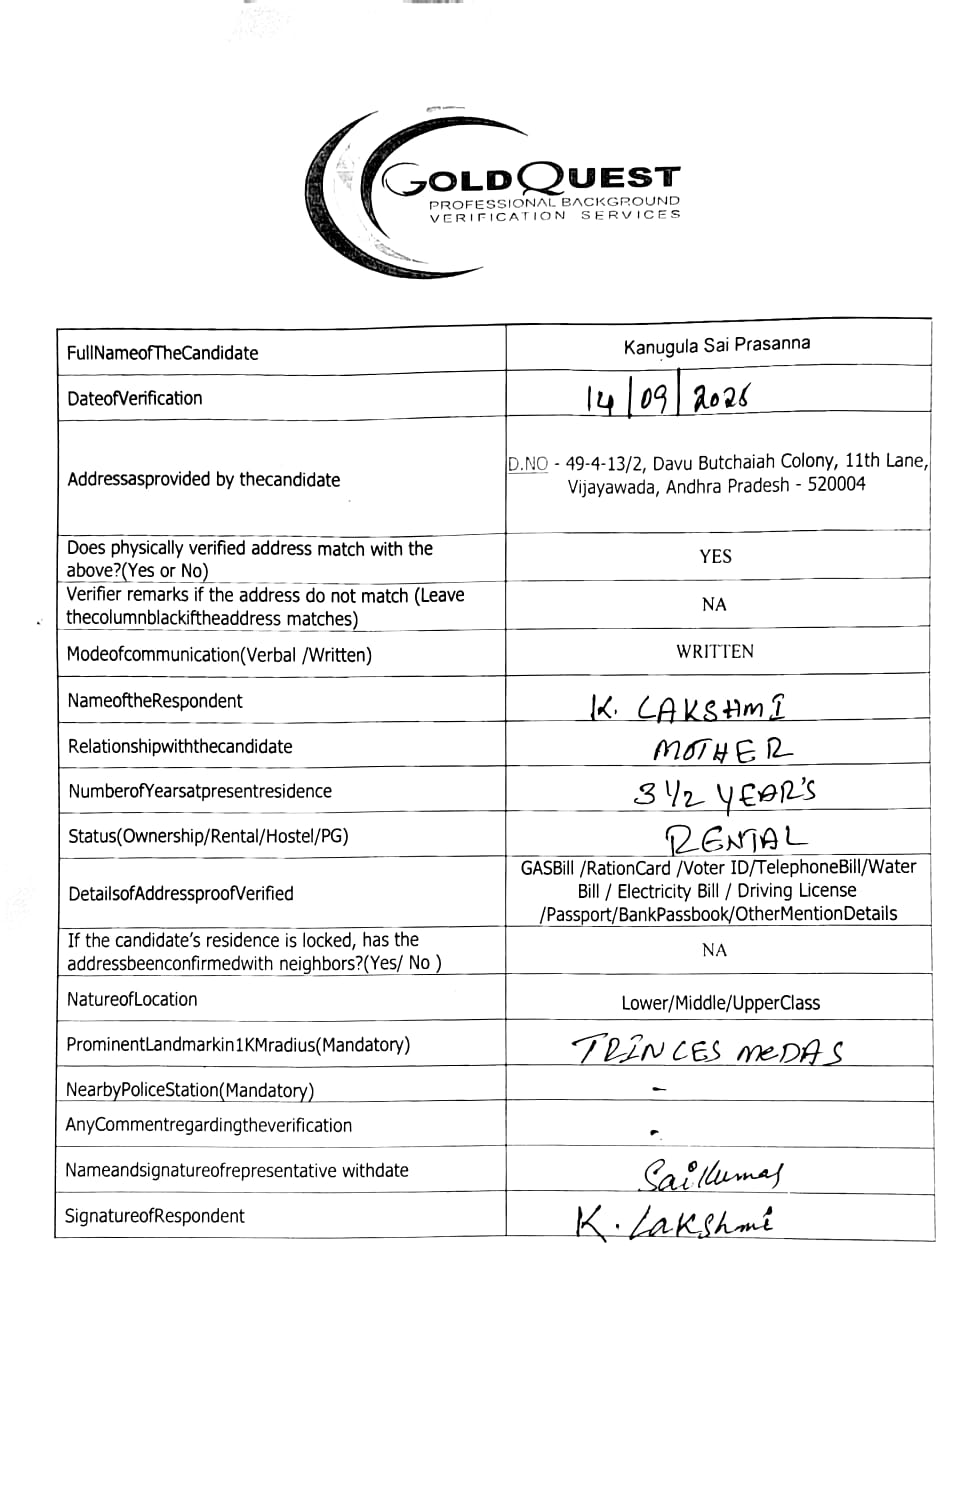 GOLDQUEST
PROFESSIONAL BACKGROUND
VERIFICATION SERVICES
FullNameofTheCandidate
Kanugula Sai Prasanna
DateofVerification
14/09/2026
Addressasprovided by thecandidate
D.NO - 49-4-13/2, Davu Butchaiah Colony, 11th Lane,
Vijayawada, Andhra Pradesh - 520004
Does physically verified address match with the
above?(Yes or No)
YES
Verifier remarks if the address do not match (Leave
thecolumnblackiftheaddress matches)
NA
Modeofcommunication(Verbal /Written)
WRITTEN
NameoftheRespondent
K. LAKSHMI
Relationshipwiththecandidate
MOTHER
NumberofYearsatpresentresidence
3 1/2 YEAR'S
Status(Ownership/Rental/Hostel/PG)
RENTAL
DetailsofAddressproofVerified
GASBill /RationCard /Voter ID/TelephoneBill/Water
Bill / Electricity Bill / Driving License
/Passport/BankPassbook/OtherMentionDetails
If the candidate's residence is locked, has the
addressbeenconfirmedwith neighbors?(Yes/ No )
NA
NatureofLocation
Lower/Middle/UpperClass
ProminentLandmarkin1KMradius(Mandatory)
NearbyPoliceStation(Mandatory)
-
AnyCommentregardingtheverification
-
Nameandsignatureofrepresentative withdate
Saikumar
SignatureofRespondent
K. Lakshmi